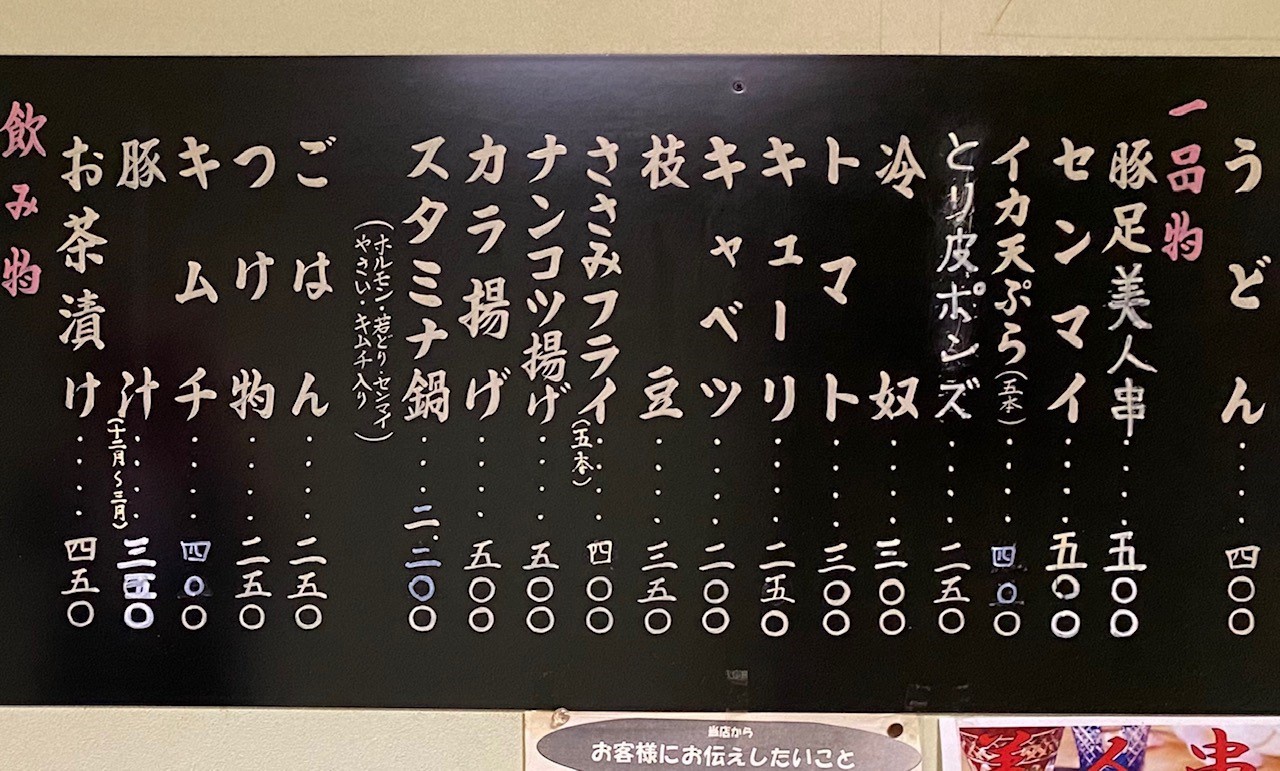 うどん・・・・四〇〇
一品物
豚足美人串・・・・五〇〇
センマイ・・・・五〇〇
イカ天ぷら(五本)・・・・四〇〇
とり皮ポンズ・・・・二五〇
冷奴・・・・三〇〇
トマト・・・・三〇〇
キューリ・・・・二五〇
キャベツ・・・・二〇〇
枝豆・・・・三五〇
ささみフライ(五本)・・・・四〇〇
ナンコツ揚げ・・・・五〇〇
カラ揚げ・・・・五〇〇
スタミナ鍋・・・・二.二〇〇
(ホルモン・若どり・センマイ
やさい・キムチ入り)
ごはん・・・・二五〇
つけ物・・・・二五〇
キムチ・・・・四〇〇
豚汁(十二月〜三月)・・・・三五〇
お茶漬け・・・・四五〇
飲み物
当店から
お客様にお伝えしたいこと
美人串